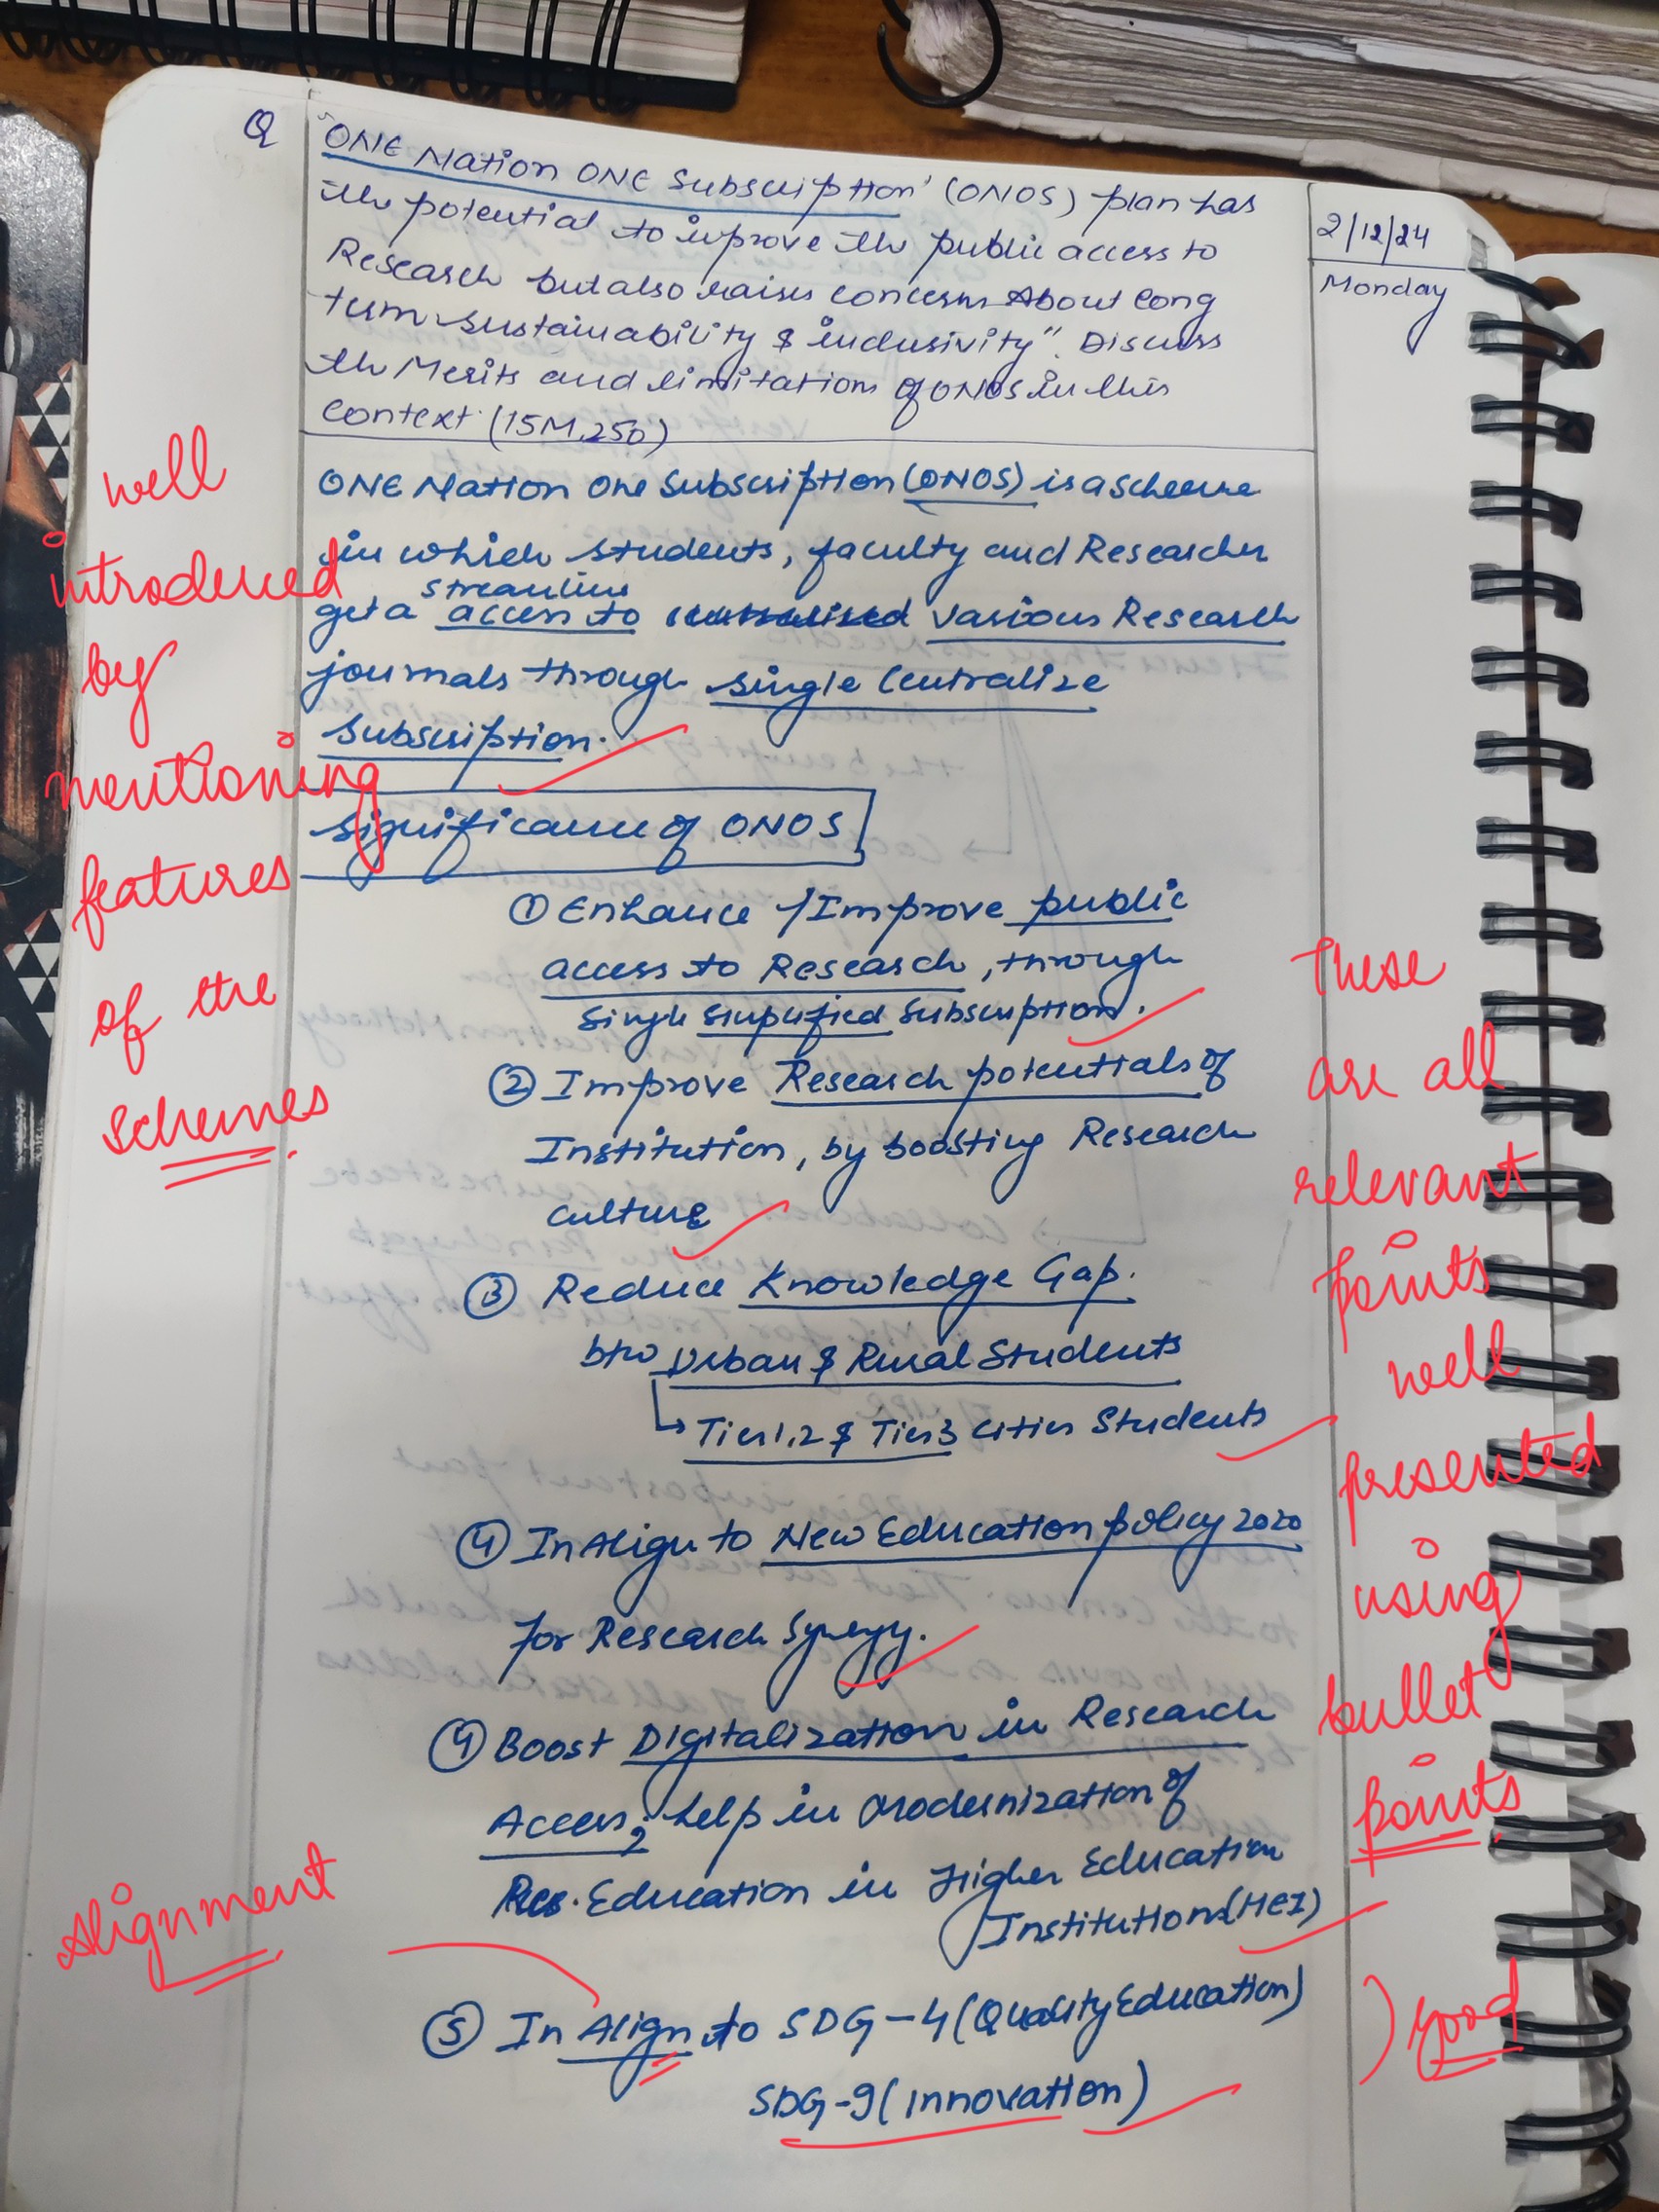 Q
"ONE Nation ONE Subscription' (ONOS) plan has
the potential to improve the public access to
Research but also raises concerns About long
term sustainability & inclusivity". Discuss
the Merits and limitations of ONOS in this
Context. (15M, 250)
2/12/24
Monday
ONE Nation One Subscription (ONOS) is a scheme
in which students, faculty and Researcher
streamline
get a access to various Research
journals through single Centralize
subscription.
Significance of ONOS
① Enhance / Improve public
access to Research, through
Single Simplified Subscription.
② Improve Research potentials of
Institution, by boosting Research
culture
③ Reduce Knowledge Gap.
btw Urban & Rural Students
↳ Tier 1,2 & Tier 3 cities Students
④ In Align to New Education policy 2020
for Research Synergy.
④ Boost Digitalization in Research
Access, help in modernization of
Education in Higher Education
Institutions (HEI)
⑤ In Align to SDG-4 (Quality Education)
SDG-9 (innovation)
well
introduced
by
mentioning
features
of the
schemes
Alignment
These
are all
relevant
points
well
presented
using
bullet
points
Good